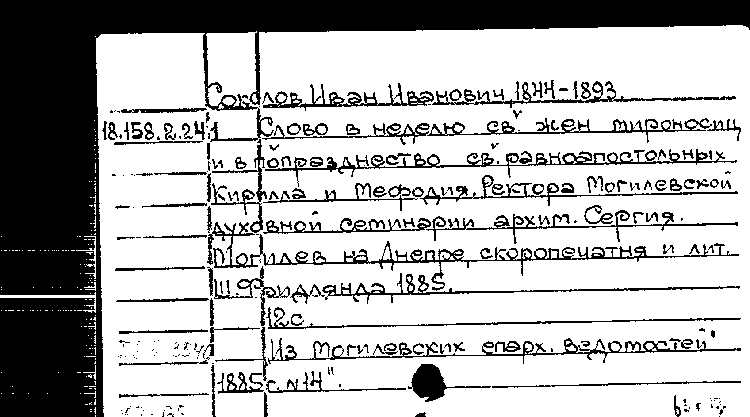 Соколов, Иван Иванович, 1844-1893.
18.158.2.241 Слово в неделю св. жен мироносиц
и в попразднество св. равноапостольных
Кирилла и Мефодия. Ректора Могилевской
духовной семинарии архим. Сергия.
Могилев на Днепре, скоропечатня и лит.
Ш. Фридлянда, 1885.
12 с.
"Из Могилевских епарх. ведомостей
1885 г. №14".